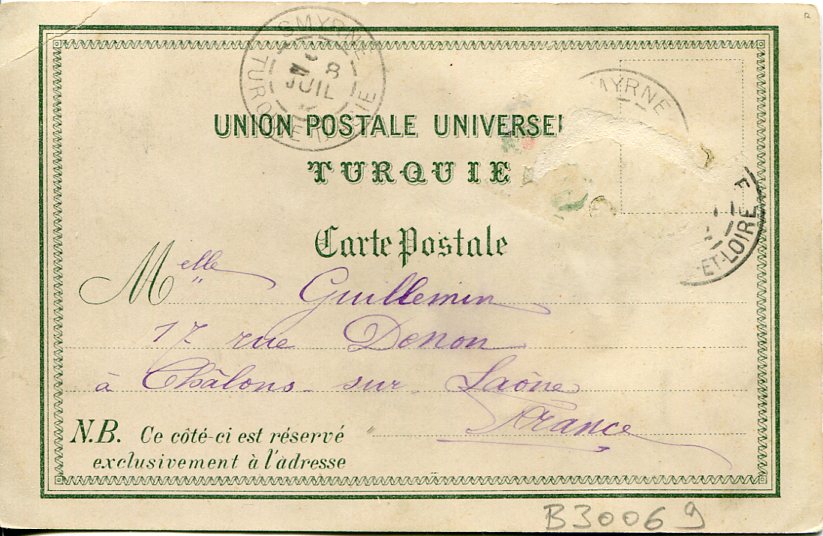 SMYRNE
8
JUIL
TURQUIE
SMYRNE
UNION POSTALE UNIVERSEL
TURQUIE
ET-LOIRE
Carte Postale
Melle Guillemin
17 rue Denon
à Châlons-sur-Saône
France
N.B. Ce côté-ci est réservé
exclusivement à l'adresse
B30069